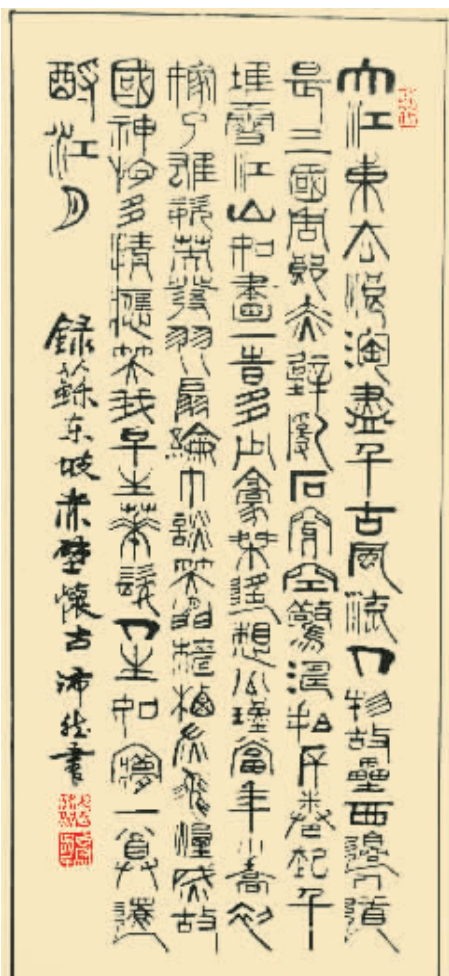 大江東去浪淘盡千古風流人物故壘西邊人道
是三國周郎赤壁亂石穿空驚濤拍岸卷起千
堆雪江山如畫一時多少豪傑遙想公瑾當年小喬初
嫁了雄姿英發羽扇綸巾談笑間檣櫓灰飛煙滅故
國神游多情應笑我早生華髮人生如夢一尊還
酹江月 錄蘇东坡赤壁懷古 沛 書